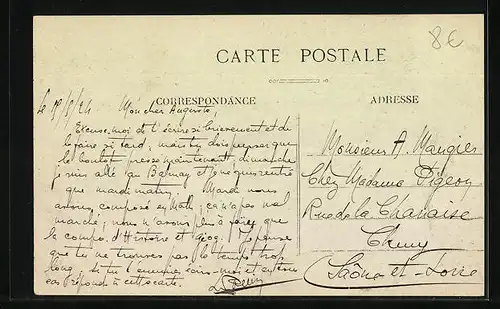 8€
CARTE POSTALE
CORRESPONDANCE
ADRESSE
Mon cher Auguste,
Excuse-moi de t'écrire si brièvement et de
le faire si tard, mais tu dois penser que
le boulot presse maintenant, dimanche
je suis allé au et ne suis rentré
que mardi matin. Mardi nous
avons composé en Math; ça n'a pas mal
marché; nous n'avons plus à faire que
la compo. d'Histoire et Géog. Je pense
que tu ne trouves pas le temps trop
long, si tu t'ennuies écris-moi et en tous
cas réponds à cette carte.
Monsieur A
Chez Madame Pigeon
Rue de la Chanaise
Cluny
Saône-et-Loire